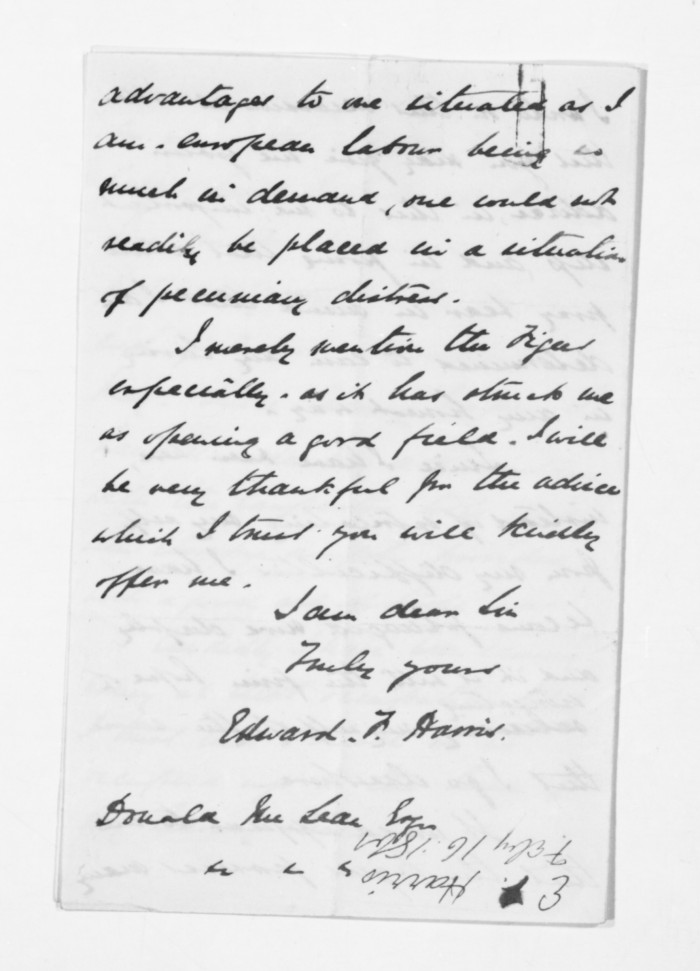 advantages to one situated as I
am - european labour being so
much in demand, one could not
readily be placed in a situation
of pecuniary distress.
I merely mention the Figees
especially - as it has struck me
as opening a good field - I will
be very thankful for the advice
which I trust you will kindly
offer me.
I am dear Sir
Truly yours
Edward. F. Harris.
Donald Mc Lean Esqr
E. Harris
Feby 16